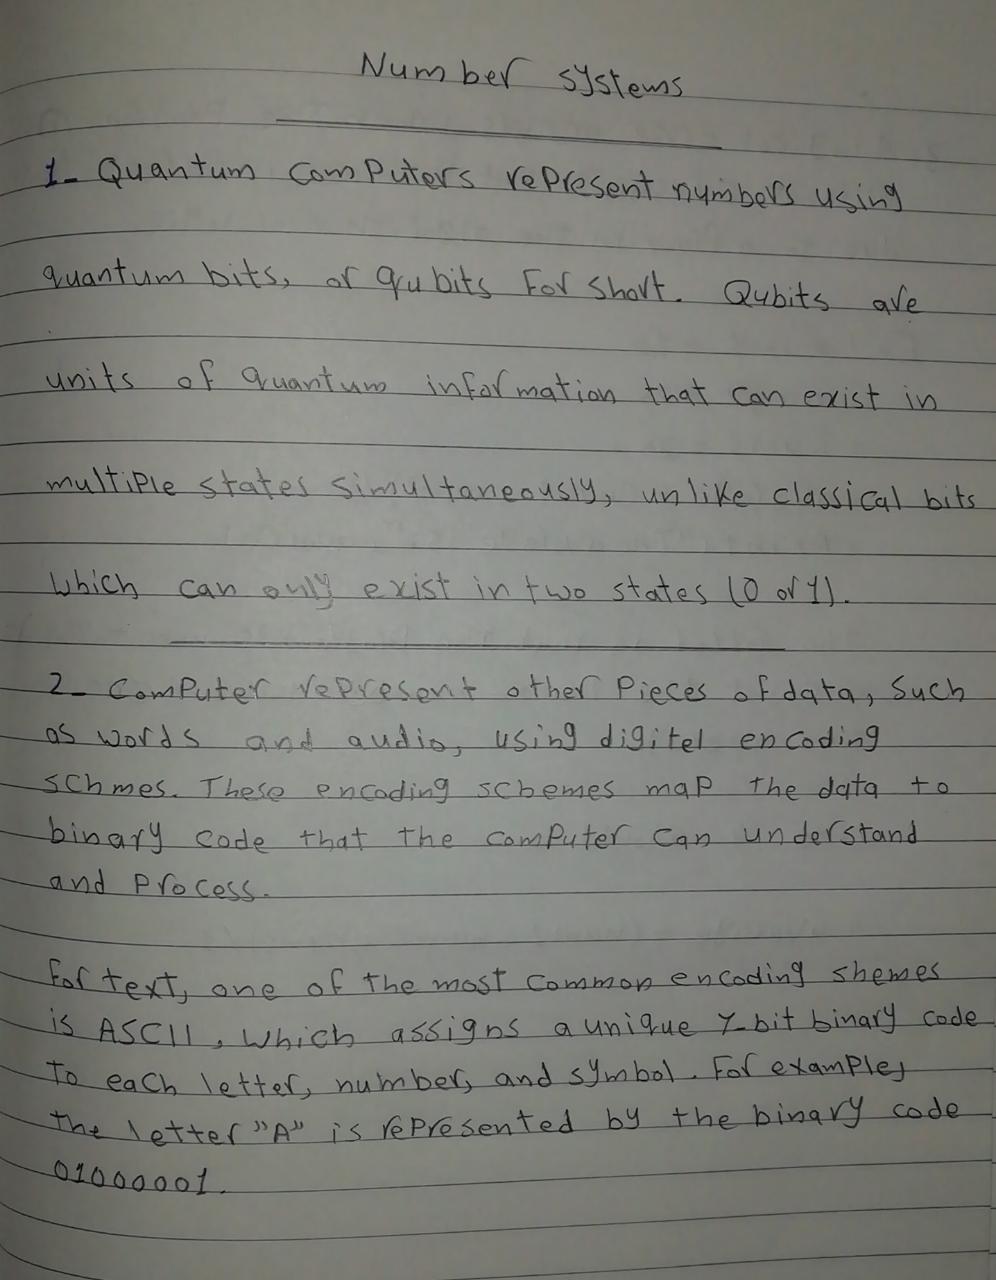 Number systems
1- Quantum computers represent numbers using
quantum bits, or qubits For short. Qubits are
units of quantum information that can exist in
multiple states simultaneously, unlike classical bits
which can only exist in two states (0 or 1).
2- Computer represent other Pieces of data, such
as words and audio, using digitel encoding
schmes. These encoding schemes map the data to
binary code that the computer can understand
and process.
For text, one of the most common encoding shemes
is ASCII, which assigns a unique 7-bit binary code
to each letter, number, and symbol. For example,
the letter "A" is represented by the binary code
01000001.